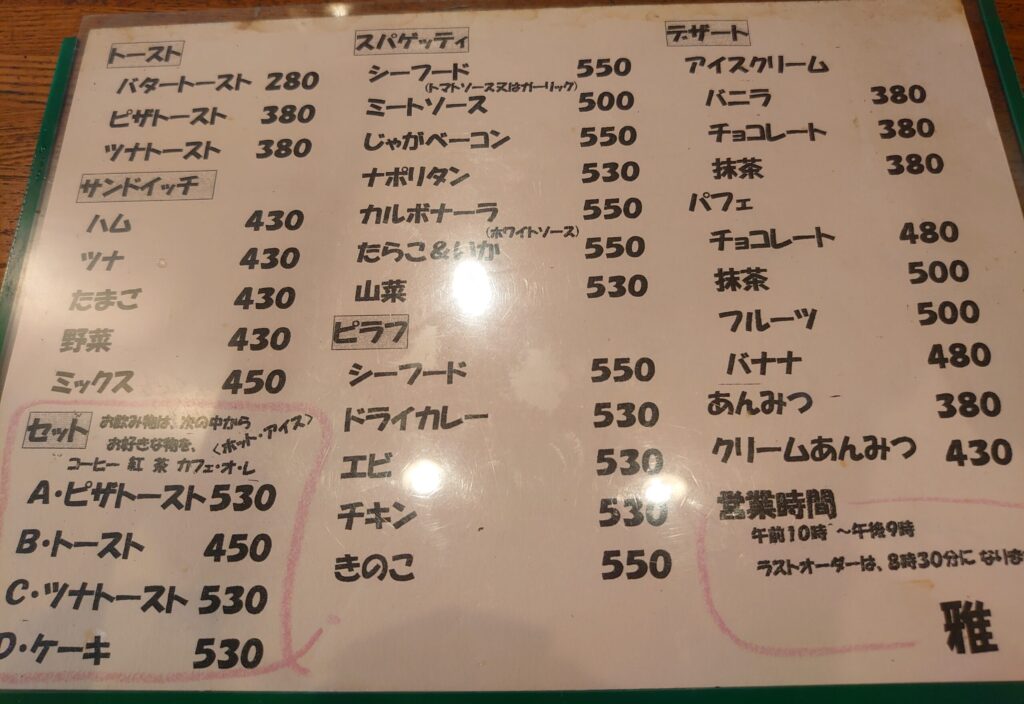 トースト
バタートースト 280
ピザトースト 380
ツナトースト 380
サンドイッチ
ハム 430
ツナ 430
たまご 430
野菜 430
ミックス 450
セット お飲み物は、次の中から
お好きな物を、〈ホット・アイス〉
コーヒー 紅茶 カフェ・オ・レ
A・ピザトースト 530
B・トースト 450
C・ツナトースト 530
D・ケーキ 530
スパゲッティ
シーフード 550
(トマトソース又はガーリック)
ミートソース 500
じゃがベーコン 550
ナポリタン 530
カルボナーラ 550
(ホワイトソース)
たらこ&いか 550
山菜 530
ピラフ
シーフード 550
ドライカレー 530
エビ 530
チキン 530
きのこ 550
デザート
アイスクリーム
バニラ 380
チョコレート 380
抹茶 380
パフェ
チョコレート 480
抹茶 500
フルーツ 500
バナナ 480
あんみつ 380
クリームあんみつ 430
営業時間
午前10時 ～午後9時
ラストオーダーは、8時30分に なりま
雅